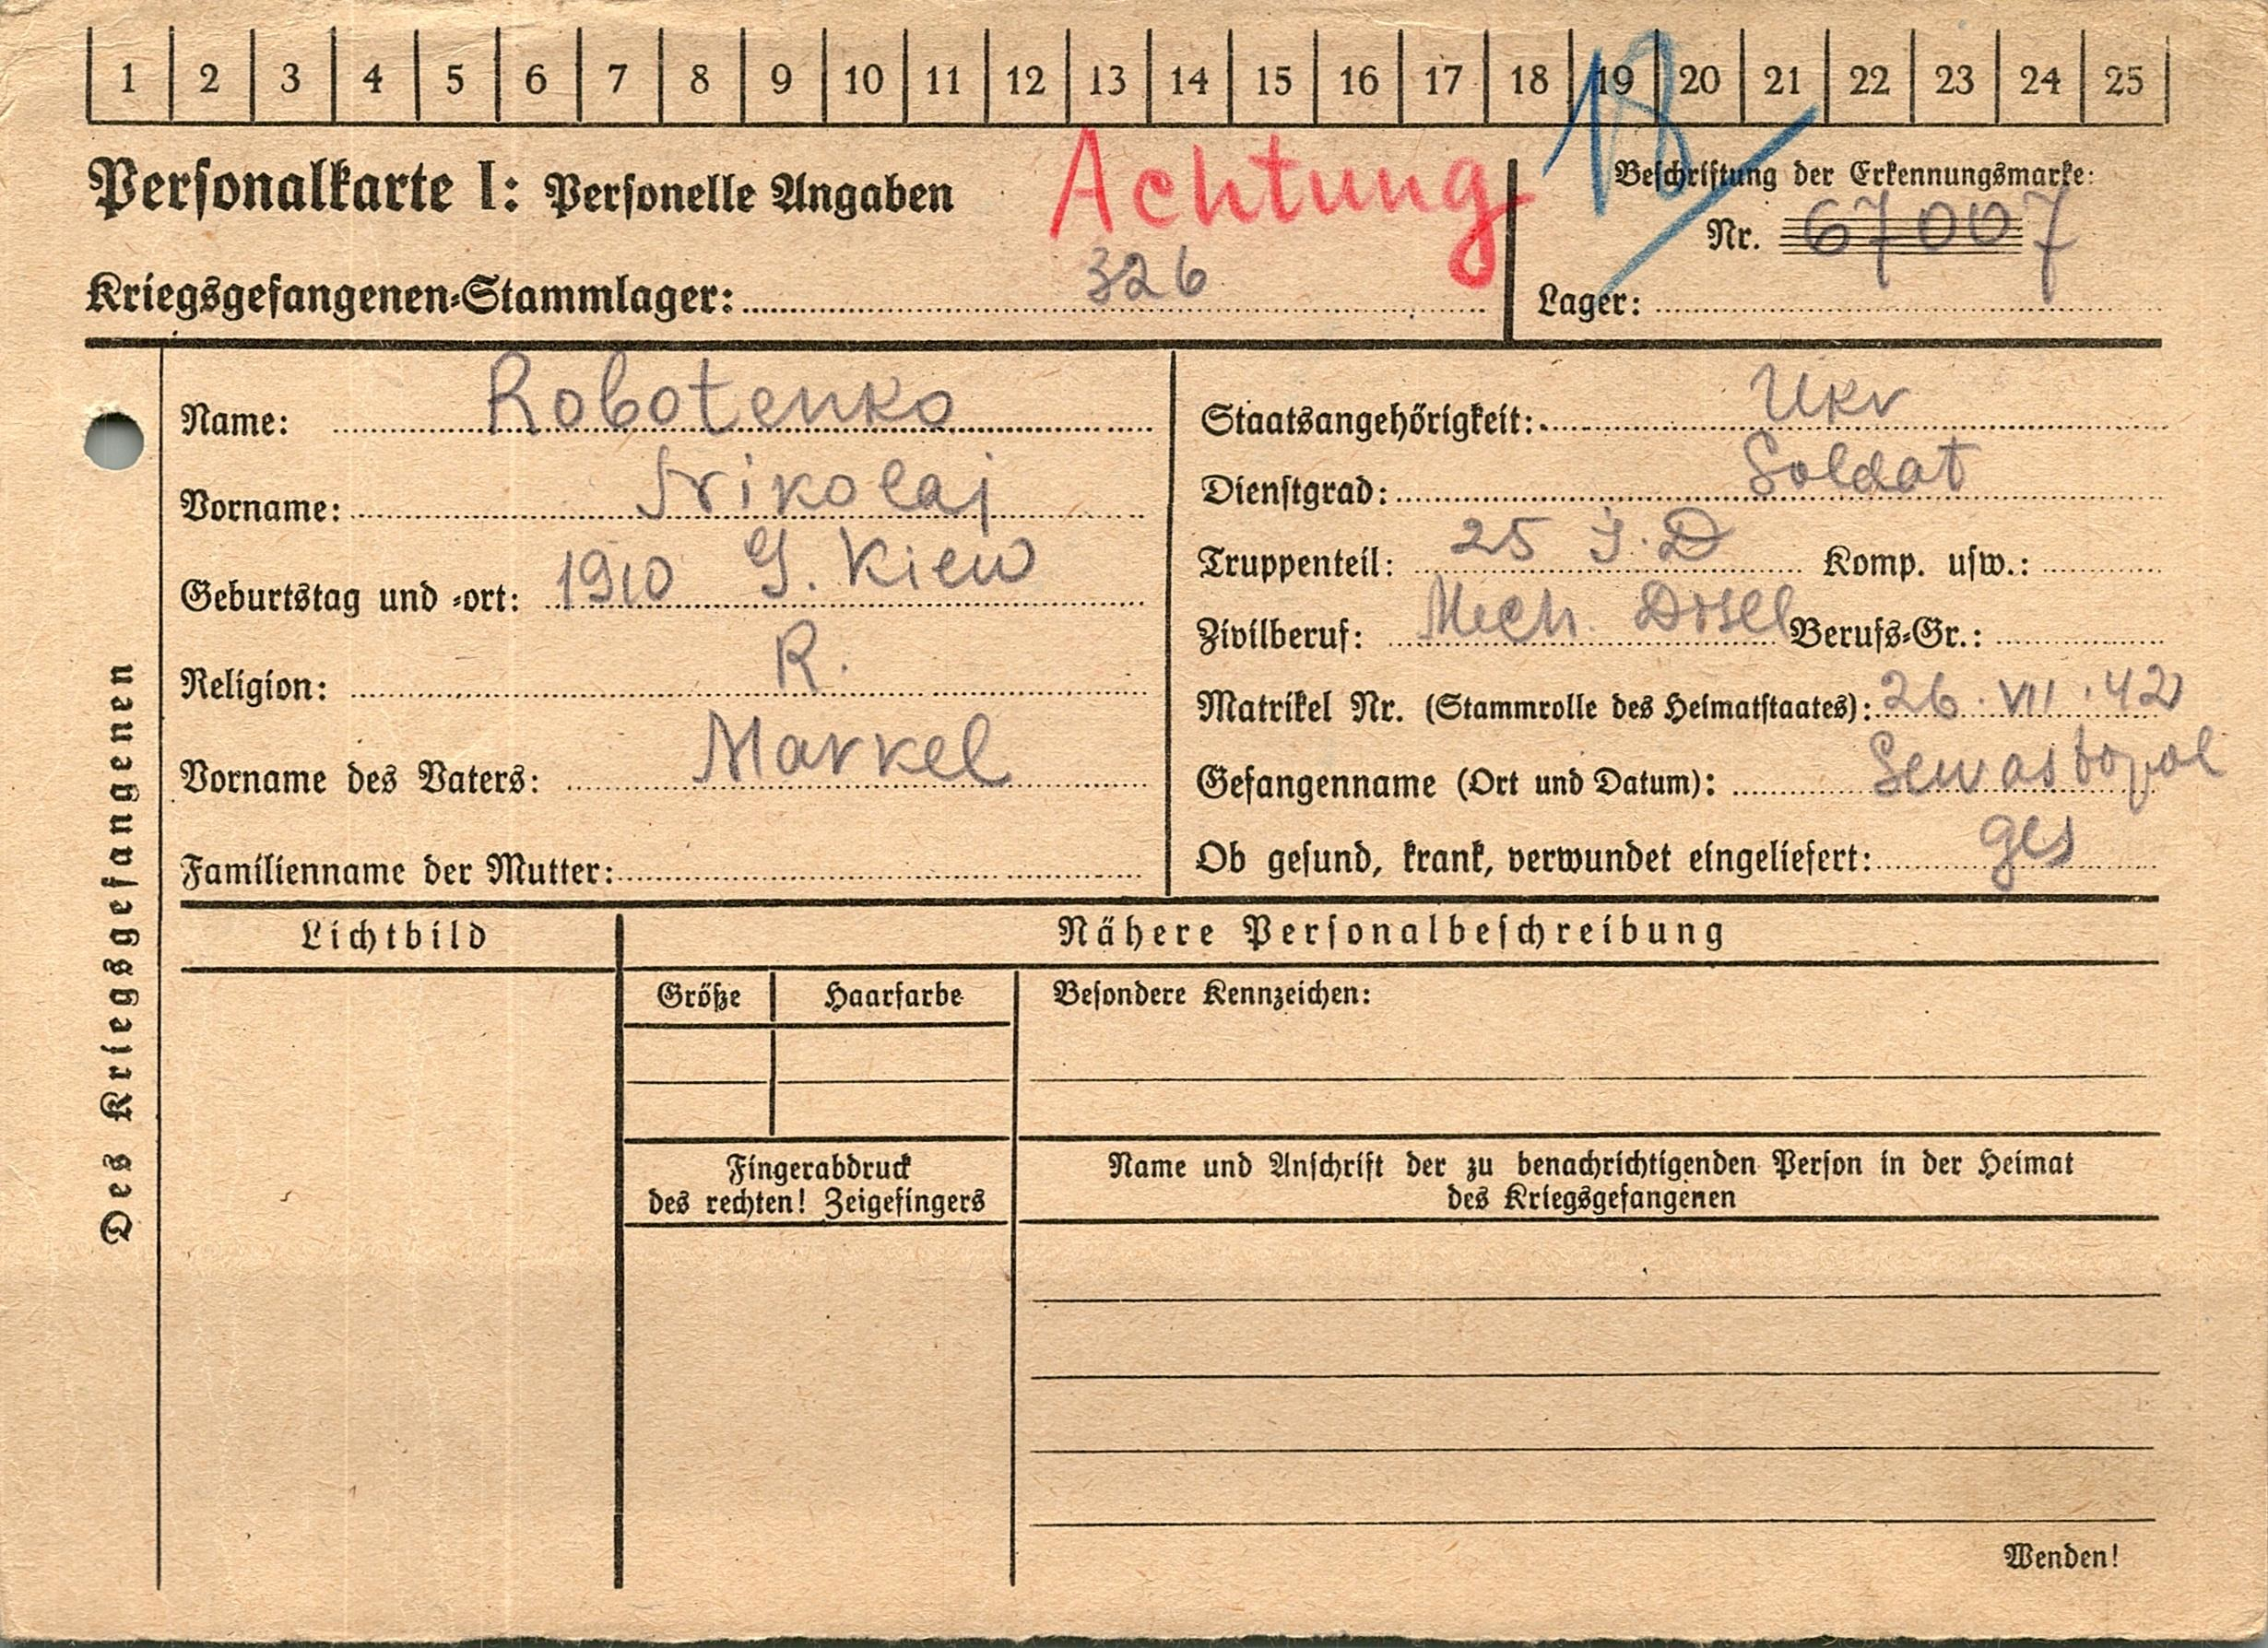 1 2 3 4 5 6 7 8 9 10 11 12 13 14 15 16 17 18 19 20 21 22 23 24 25
18
Personalkarte I: Personelle Angaben
Achtung
Beschriftung der Erkennungsmarke:
Nr. 67007
Kriegsgefangenen-Stammlager: 326
Lager:
Des Kriegsgefangenen
Name: Robotenko
Vorname: Nikolaj
Geburtstag und -ort: 1910 G. Kiew
Religion: R.
Vorname des Vaters: Markel
Familienname der Mutter:
Staatsangehörigkeit: Ukr
Dienstgrad: Soldat
Truppenteil: 25 J.D Komp. usw.:
Zivilberuf: Mech Disel Berufs-Gr.:
Matrikel Nr. (Stammrolle des Heimatstaates): 26.VII.42
Gefangenname (Ort und Datum): Sewastopol
Ob gesund, krank, verwundet eingeliefert: ges
Lichtbild
Nähere Personalbeschreibung
Größe Haarfarbe Besondere Kennzeichen:
Fingerabdruck
des rechten! Zeigefingers
Name und Anschrift der zu benachrichtigenden Person in der Heimat
des Kriegsgefangenen
Wenden!